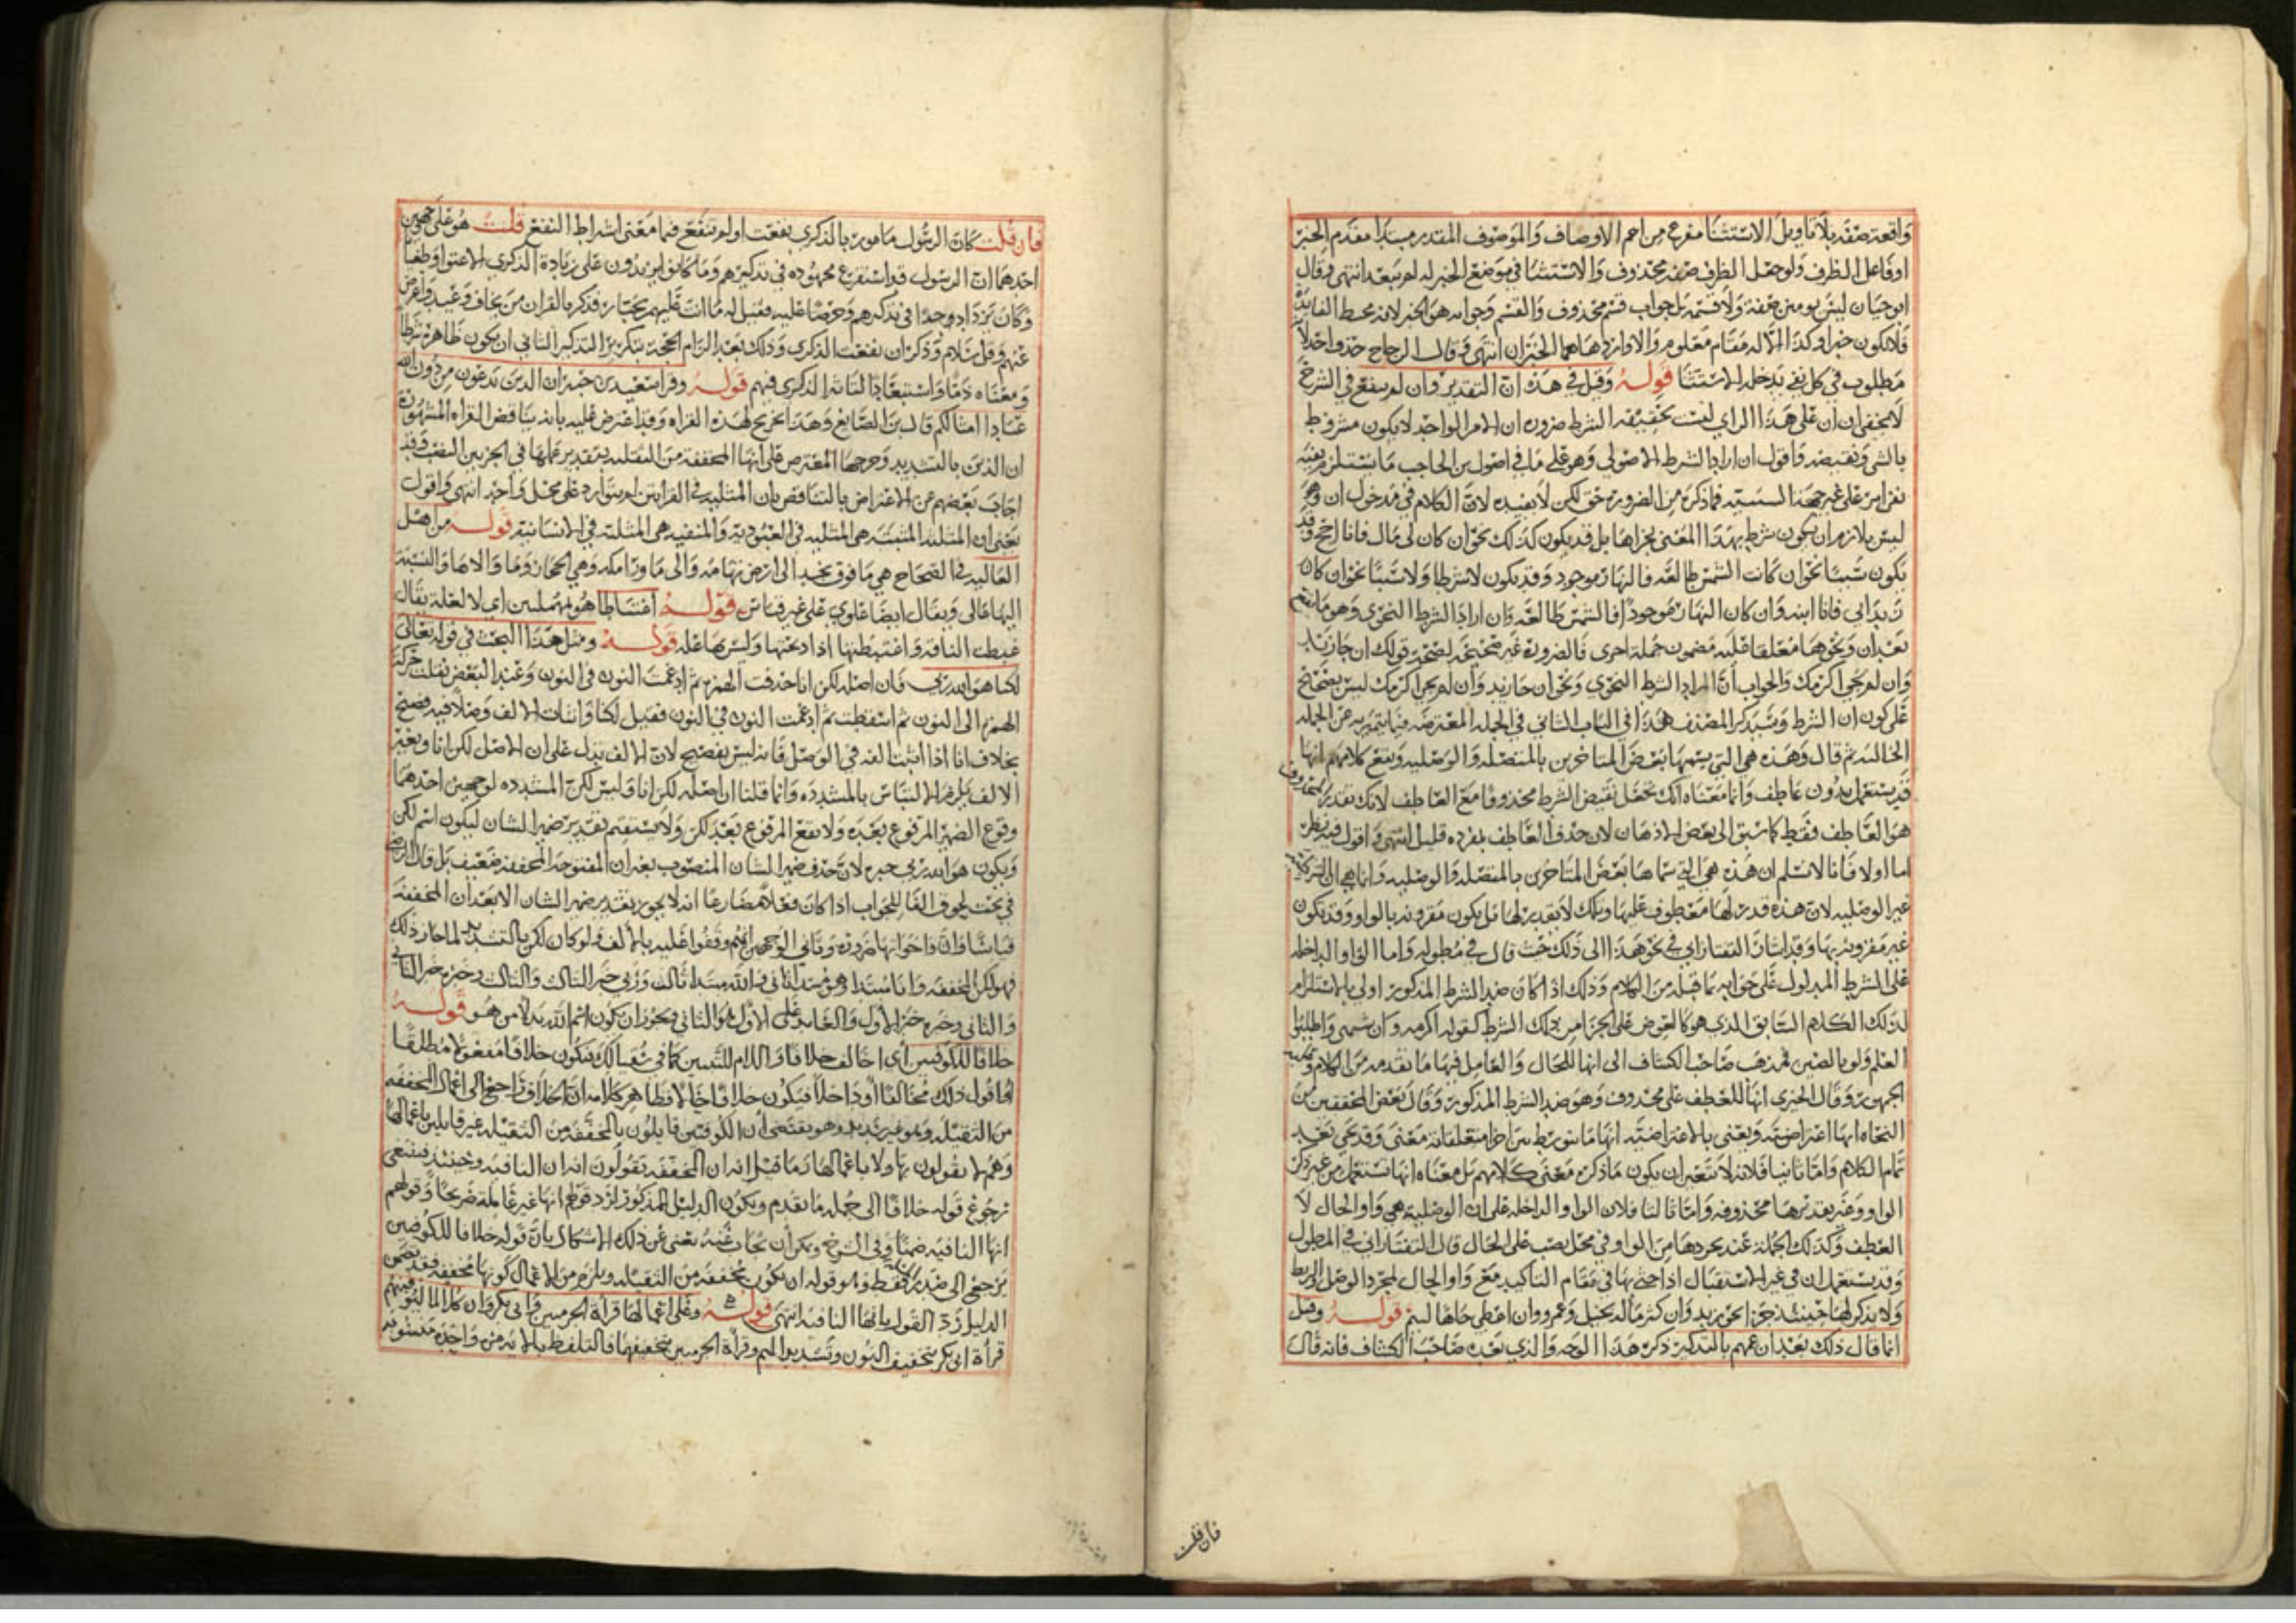 واقعة صفة بلا تاويل الاستثنا مفرع من اعم الاوصاف والموصوف المقدر مبتدا مقدم الخبر
او فاعل الظرف ولو جعل الظرف صفة محذوف والاستثنا في موضع الخبر له لم يبعد انتهى وقال
ابو حيان ليس يومنن صفة ولا قسمة بل جواب قسم محذوف والقسم وجوابه هو الخبر لانه محط الفايدة
فلا يكون خبرا وكذا الا له مقام معلوم والا واردها هما الخبران انتهى وقال الزجاج حذف احد
مطلوب في كل نفي يدخله الاستثنا قوله وقيل في هذه ان التقدير وان لم تنفع في الشرح
لا يخفى ان ان على هذا الراي ليست بحقيقة الشرط ضرورة ان الامر الواحد لا يكون مشروط
بالشي ونقيضه واقول ان اراد الشرط الاصولي وهو على ما في اصول بن الحاجب ما يستلزم نفيه
نفي امر على غير جهة السببية فما ذكره من الضرورة حق لكن لا يفيده لان الكلام في مدخول ان وهو
ليس بلازم ان يكون شرط بهذا المعنى لجزاها بل قد يكون كذلك نحو ان كان لي مال فانا احج وقد
يكون سببا نحو ان كانت الشمس طالعة فالنهار موجود وقد يكون لا شرطا ولا سببا نحو ان كان
زيد ابي فانا ابنه وان كان النهار موجودا فالشمس طالعة وان اراد الشرط النحوي وهو ما يقع
بعد ان ونحوها معلقا عليه مضمون جملة اخرى فالضرورة غير صحيحة لصحة قولك ان جا زيد
وان لم يجي اكرمك والجواب ان المراد الشرط النحوي ونحو ان جا زيد وان لم يجي اكرمك ليس بصحيح
على كون ان الشرط وسيذكر المصنف هذا في الباب الثاني في الجملة المعترضة فيما يتميز به عن الجملة
الحالية ثم قال وهذه هي التي يسميها بعض المتاخرين بالمتصلة والوصلية ويقع كلامهم انها
قد يستعمل بدون عاطف وانما معناه انك تجعل نقيض الشرط محذوفا مع العاطف لانك تقدير المحذوف
هو العاطف فقط كما سبق الى بعض الاذهان لان حذف العاطف بمفرده قليل انتهى واقول فيه نظر
اما اولا فانا لا نسلم ان هذه هي التي سماها بعض المتاخرين بالمتصلة والوصلية وانما هي ان الشرطية
غير الوصلية لان هذه قدر لها معطوف عليها وتلك لا يقدر لها بل يكون مقرونة بالواو وقد تكون
غير مقرونة بها وقد اشار التفتازاني في نحو هذا الى ذلك حيث قال في مطوله واما الواو الداخلة
على الشرط المدلول على جوابه بما قبله من الكلام وذلك اذا كان ضد الشرط المذكور اولى بالاستلزام
لذلك الكلام السابق الذي هو كالعوض على الجزا من ذلك الشرط كقوله اكرمه وان شتمني واطلبوا
العلم ولو بالصين فمذهب صاحب الكشاف الى انها للحال والعامل فيها ما تقدمه من الكلام وعليه
الجمهور وقال الجنزي انها للعطف على محذوف وهو ضد الشرط المذكور وقال بعض المحققين من
النحاة انها اعتراضية ويعني بالاعتراضية انها ما يتوسط بين اجزا متعلقا به معنى وقد يجي بعد
تمام الكلام واما ثانيا فلانه لا يتعين ان يكون ما ذكره معنى كلامهم بل معناه انها تستعمل من غير ذكر
الواو وغير تقديرها محذوفة واما ثالثا فلان الواو الداخلة على ان الوصلية هي واو الحال لا
العطف وكذلك الجملة عند تجردها من الواو في محل نصب على الحال قال التفتازاني في المطول
وقد يستعمل ان في غير الاستقبال اذا جي بها في مقام التاكيد مع واو الحال لمجرد الوصل والربط
ولا يذكر لها حينئذ جزا نحو زيد وان كثر ماله بخيل وعمرو وان اعطي جاها لئيم قوله وقيل
انما قال ذلك بعد ان عمهم بالتذكير ذكره هذا الوجه والذي بعده صاحب الكشاف فانه قال
فان قلت
فان قلت كان الرسول مامور بالذكرى نفعت او لم تنفع فما معنى اشتراط النفع قلت هو على وجهين
احدهما ان الرسول قد استفرغ مجهوده في تذكيرهم وما كانوا يزيدون على زيادة الذكرى الا عتوا وطغيانا
وكان يزداد وجدا في تذكيرهم وحرصا عليه فقيل له ما انت عليهم بجبار فذكر بالقران من يخاف وعيد واعرض
عنهم وقل سلام وذكر ان نفعت الذكرى وذلك بعد الزام الحجة بتكرير التذكير الثاني ان يكون ظاهره شرطا
ومعناه ذما واستبعادا لتاثير الذكرى فيهم قوله وقرا سعيد بن جبير ان الذين تدعون من دون الله
عبادا امثالكم قال بن الصايغ وهذا تخريج لهذه القراه وقد اعترض عليه بانه يناقض القراه المشهورة
ان الذين بالتشديد وخرجها المعترض على انها المخففة من الثقيلة بتقدير عملها في الجزيين النصب وقد
اجاب بعضهم عن الاعتراض بالتناقض بان المثلية في القراتين لم يتوارد على محل واحد انتهى واقول
يعني ان المثلية المثبتة هي المثلية في العبودية والمنفية هي المثلية في الانسانية قوله من اهل
العاليه في الصحاح هي ما فوق نجد الى ارض تهامه والى ما ورا مكه وهي الحجاز وما والاها والنسبة
اليها عالي ويقال ايضا علوي على غير قياس قوله اعتباطا هو بمهملتين اي لا لعلة يقال
عبطت الناقة واعتبطتها اذا ذبحتها وليس بها علة قوله ومثل هذا البحث في قوله تعالى
لكنا هو الله ربي فان اصله لكن انا حذفت الهمزه ثم ادغمت النون في النون وعند البعض نقلت حركة
الهمزه الى النون ثم اسقطت ثم ادغمت النون في النون فقيل لكنا واثبات الالف وصلا فيه فصيح
بخلاف انا اذا اثبتنا الفه في الوصل فانه ليس بفصيح لان الالف يدل على ان الاصل لكن انا وبغير
الالف يلزم الالتباس بالمشدده وانما قلنا ان اصله لكن انا وليس لكن المشدده لوجهين احدهما
وقوع الضمير المرفوع بعده ولا يقع المرفوع بعد لكن ولا يستقيم تقدير ضمير الشان ليكون اسم لكن
ويكون هو الله ربي خبره لان حذف ضمير الشان المنصوب بغير ان المفتوحة المخففة ضعيف بل قال الرضي
في بحث لحوق الفا للجواب اذا كان فعلا مضارعا انه لا يجوز تقدير ضمير الشان الا بعد ان المخففة
قياسا وان واخواتها ضرورة وثاني الوجهين انهم وقفوا عليه بالالف ولو كان لكن بالتشديد لما جاز ذلك
فهو لكن المخففة وانا مبتدا وهو مبتدا ثاني والله مبتدا ثالث وربي خبر الثالث والثالث وخبره خبر الثاني
والثاني وخبره خبر الاول والعايد على الاول والثاني ويجوز ان يكون اسم الله بدلا من هو قوله
خلافا للكوفيين اي اخالف خلافا واللام للتبيين كما في سقيا لك فيكون خلافا مفعولا مطلقا
او اقول ذلك مخالفا او ذا خلاف فيكون خلافا حالا فظاهر كلامه ان الخلاف راجع الى اعمال المخففة
من الثقيلة وهو غير سديد وهو يقتضي ان الكوفيين قايلون بالمخففة من الثقيلة غير قايلين باعمالها
وهم لا يقولون بها ولا باعمالها بل ما قيل انه ان المخففة يقولون انه ان النافية وحينئذ فينبغي
رجوع قوله خلافا الى جملة ما تقدم ويكون الدليل المذكور لرد قولهم انها غير عاملة صريحا وقولهم
انها النافية ضمنا وفي الشرح ويمكن ان يجاب عنه يعني عن ذلك الاشكال بان قوله خلافا للكوفيين
يرجع الى صدر كلامه فقط وهو قوله ان يكون مخففة من الثقيلة ويلزم من الاعمال كونها مخففة فقد تضمن
الدليل رد القول بانها النافية انتهى قوله وعلى اعمالها قراة الحرميين وابي بكر وان كلا لما ليوفينهم
قراة ابي بكر بتخفيف النون وتشديد الميم وقراة الحرميين بتخفيفهما فالتلفظ بالاية مرة واحدة